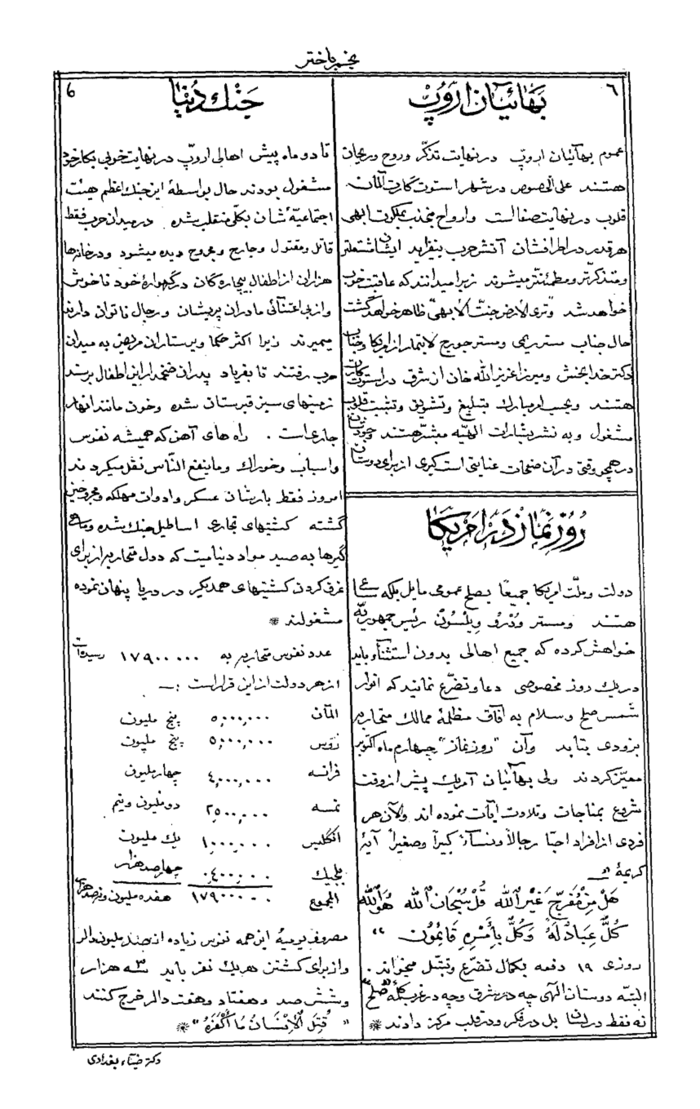 نجم باختر
٦
بهائیان اروپ
عموم بهائیان اروپ در نهایت تذکر و روح و ریحان
هستند علی الخصوص در شهر استوت کارت آلمان
قلوب در نهایت صفا است و ارواح منجذب بملکوت ابهی
هر قدر در اطرافشان آتش حرب بیفزاید ایشان مشتعلتر
و متذکرتر و مطمئنتر میشوند زیرا میدانند که عاقبت خوب
خواهد شد و تری الارض جنت الابهی ظاهر خواهد گشت
حال جناب مستر ریمی و مستر جورج لاتیمار از امریکا و جناب
دکتر خدابخش و میرزا عزیز الله خان از شرق در استوت کارت
هستند و بحسب امر مبارک بتبلیغ و تشویق و تثبیت قلوب
مشغول و به نشر بشارات الهیه مبشر هستند وجودشان
در همچو وقتی در آن صفحات عنایتی است کبری از برای دوستان
روز نماز در امریکا
دولت و ملت امریکا جمیعا بصلح عمومی مایل بلکه ساعی
هستند و مستر وُدرُو ویلسُون رئیس جمهوریه
خواهش کرده که جمیع اهالی بدون استثناء باید
در یک روز مخصوصی دعا و تضرع نمایند که انوار
شمس صلح و سلام به آفاق مظلمهٔ ممالک متحاربه
بزودی بتابد وآن "روز نماز" چهارم ماه اکتوبر
معین کردند ولی بهائیان آمریک پیش از وقت
شروع بمناجات و تلاوت آیات نموده اند والآن هر
فردی از افراد احبا رجالاً ونساءً کبیراً وصغیراً آیهٔ
کریمهٔ "
هَل مِن مُفَرِّج غَیرُ الله قُل سُبحَانَ الله هُوَ الله
کُلٌّ عِبَادٌ لَهُ وَکُلٌّ بِأَمرِهِ قَائِمُونَ "
روزی ١٩ دفعه بکمال تضرع و تبتل میخوانند.
البته دوستان الهی چه در شرق و چه در غرب کلمهٔ "صلح"
نه فقط در لسان بل در فکر و در قلب مرکز دادند *
6
جنک دنیا
تا دو ماه پیش اهالی اروپ در نهایت خوبی بکار خود
مشغول بودند حال بواسطهٔ این جنک اعظم هیئت
اجتماعیهٔ شان بکلی منقلب شده در میدان حرب فقط
قاتل و مقتول و جارح و مجروح دیده میشود و در خانه ها
هزاران از اطفال بیچاره گان در گهوارهٔ خود ناخوش
و از بی اعتنائی مادران پریشان و رجال ناتوان دارند
میمیرند زیرا اکثر حکما و پرستاران مریض به میدان
حرب رفتند تا بفریاد پدران ضخمدار این اطفال برسند
زمینهای سبز قبرستان شده وخون مانند انهار
جاری است . راه های آهن که همیشه نفوس
واسباب و خوراک و ما ینفع الناس نقل میکردند
امروز فقط بارشان عسکر و ادوات مهلکه و مجروحین
گشته کشتیهای تجاری اساطیل جنک شده و ماهی
گیرها به صید مواد دینامیت که دول متحاربه از برای
غرق کردن کشتیهای همدیگر در دریا پنهان نموده
مشغولند *
عدد نفوس متحاربه به ١٧٩٠٠٠٠٠ رسیده است
از هر دولت از این قرار است :—
المآن ٥,٠٠٠,٠٠٠ پنج ملیون
روس ٥,٠٠٠,٠٠٠ پنج ملیون
فرانسه ٤,٠٠٠,٠٠٠ چهار ملیون
نمسه ٢,٥٠٠,٠٠٠ دو ملیون و نیم
انگلیس ١,٠٠٠,٠٠٠ یک ملیون
بلجیک ٠,٤٠٠,٠٠٠ چهار صد هزار
المجموع ١٧٩٠٠٠٠٠ هفده ملیون و نهصد هزار
مصروف یومیهٔ این همه نفوس زیاده از صد ملیون دالر
و از برای کشتن هر یک نفر باید ٣ سه هزار
و شش صد و هفتاد و هفت دالر خرج کنند
"قُتِلَ الإنسَانُ مَا أکفَرَهُ" *
دکتر ضیاء بغدادی